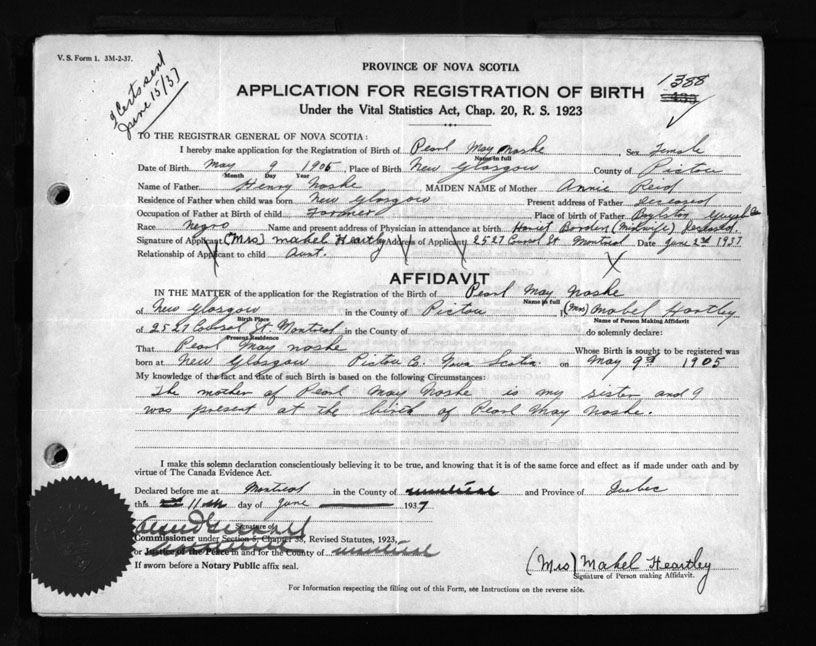 V. S. Form 1. 3M-2-37.
2 Certs sent
June 15/37
PROVINCE OF NOVA SCOTIA
APPLICATION FOR REGISTRATION OF BIRTH
1388
Under the Vital Statistics Act, Chap. 20, R. S. 1923
TO THE REGISTRAR GENERAL OF NOVA SCOTIA:
I hereby make application for the Registration of Birth of Pearl May Noshe Sex Female
Name in full
Date of Birth May 9 1905, Place of Birth New Glasgow County of Pictou
Month Day Year
Name of Father Henry Noshe MAIDEN NAME of Mother Annie Reid
Residence of Father when child was born New Glasgow Present address of Father Deceased
Occupation of Father at Birth of child Farmer Place of birth of Father Boylston Guysb Co
Race Negro Name and present address of Physician in attendance at birth Harriet Borden (Midwife) Deceased.
Signature of Applicant (Mrs) Mabel Heartley Address of Applicant 2527 St. Montreal Date June 2nd 1937
Relationship of Applicant to child Aunt.
AFFIDAVIT
IN THE MATTER of the application for the Registration of the Birth of Pearl May Noshe
Name in full
of New Glasgow in the County of Pictou I (Mrs) Mabel Hartley
Birth Place Name of Person Making Affidavit
of 2527 St. Montreal in the County of do solemnly declare:
Present Residence
That Pearl May Noshe Whose Birth is sought to be registered was
born at New Glasgow Pictou Co. Nova Scotia on May 9th 1905
My knowledge of the fact and date of such Birth is based on the following Circumstances:
The mother of Pearl May Noshe is my sister and I
was present at the birth of Pearl May Noshe.
I make this solemn declaration conscientiously believing it to be true, and knowing that it is of the same force and effect as if made under oath and by
virtue of The Canada Evidence Act.
Declared before me at Montreal in the County of Montreal and Province of Quebec
this 11th day of June 1937
Signature of
Commissioner under Section 5, Chapter 38, Revised Statutes, 1923,
or Justice of the Peace in and for the County of Montreal
If sworn before a Notary Public affix seal.
(Mrs) Mabel Heartley
Signature of Person making Affidavit.
For Information respecting the filling out of this Form, see Instructions on the reverse side.